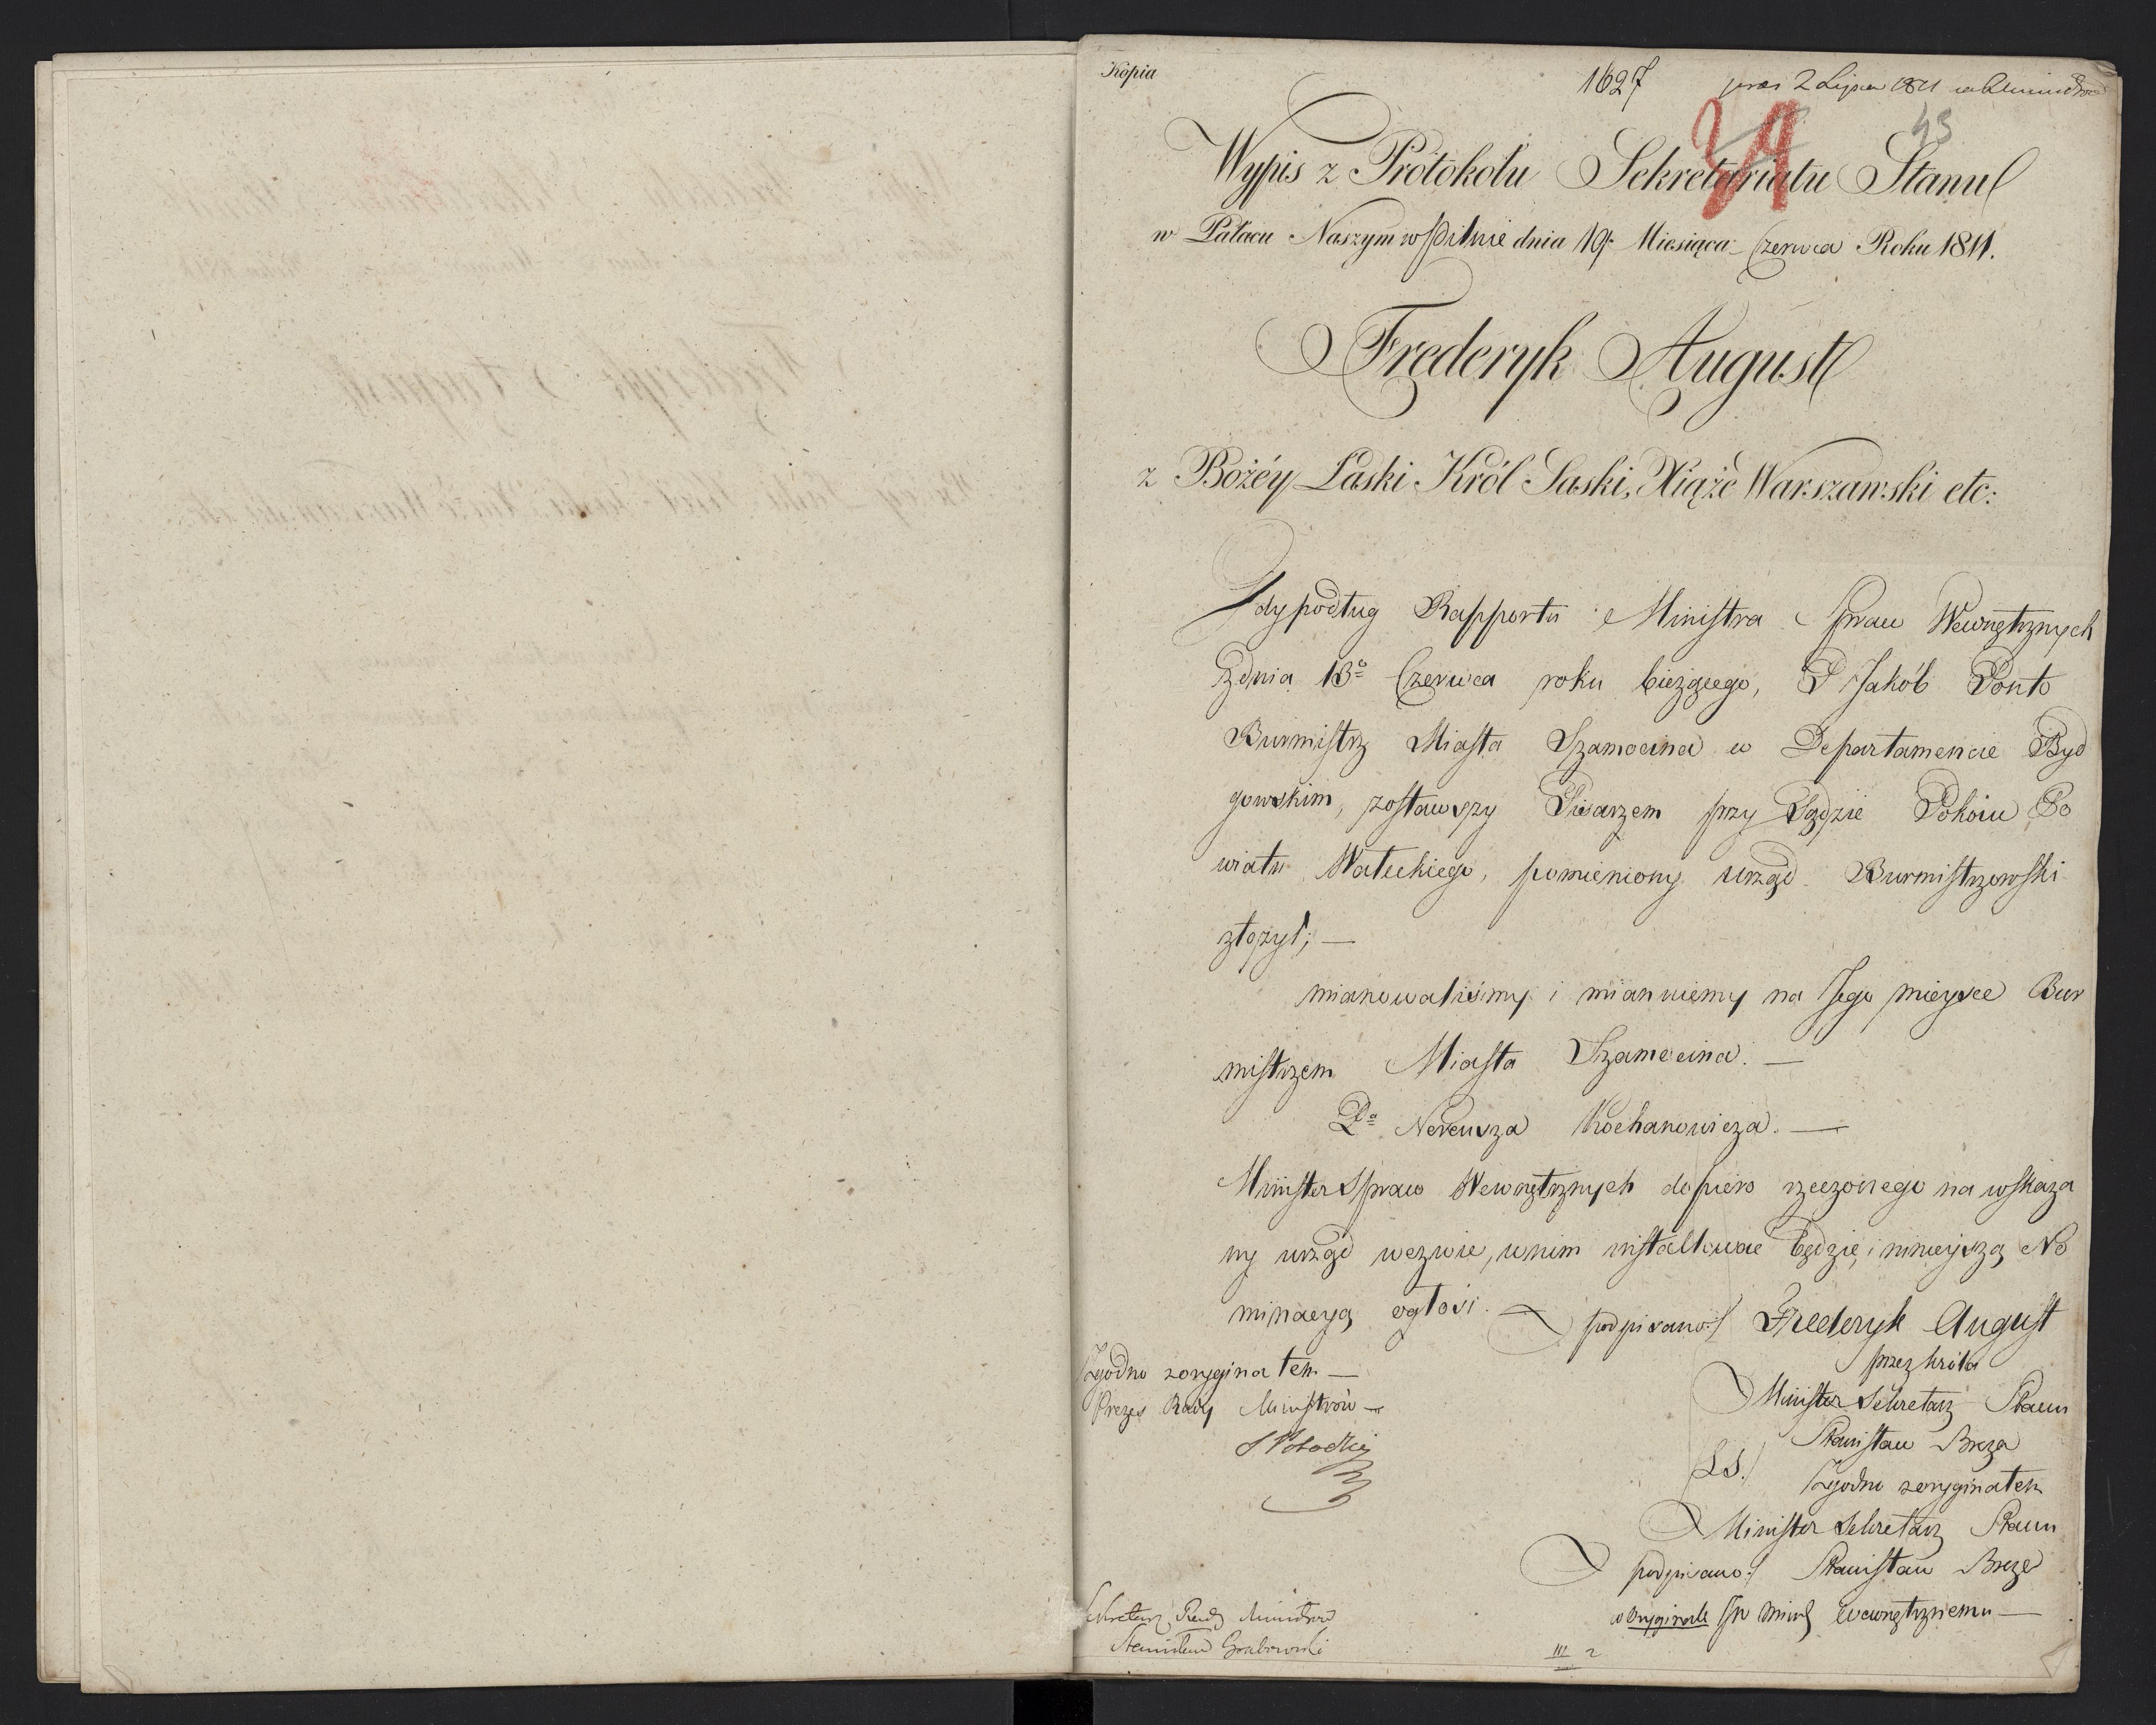 Kopia
1627
præs 2 Lipca 1811
43
39
Wypis z Protokołu Sekretariatu Stanu
w Pałacu Naszym w Pilnie dnia 19. Miesiąca Czerwca Roku 1811.
Frederyk August
z Bożéy Łaski Król Saski, Xiąże Warszawski etc:
Gdy podług Rapportu Ministra Spraw Wewnętrznych
z dnia 13º Czerwca roku bieżącego, P Jakób Ponto
Burmistrz Miasta Szamocina w Departamencie Byd
gowskim, zostawszy Pisarzem przy Sądzie Pokoiu Po
wiatu Wałeckiego, pomieniony urząd Burmistrzowski
złożył; —
mianowaliśmy i mianuiemy na Jego mieysce Bur
mistrzem Miasta Szamocina. —
Pª Nereusza Kochanowicza. —
Minister Spraw Wewnętrznych dopiero rzeczonego na wskaza
ny urząd wezwie, w nim installować będzie, i ninieyszą No
minacyą ogłosi. —
podpisano:/ Frederyk August
przez króla
Minister Sekretarz Stanu
Stanisław Breza
(L.S.)
Zgodno z oryginałem
Minister Sekretarz Stanu
podpisano:/ Stanisław Breza
w Oryginale JW Minis Wewnętrznemu —
Zgodno z oryginałem —
Prezes Rady Ministrów —
S Potocki
Sekretarz Rady Ministrów
Stanisław Grabowski
III 2